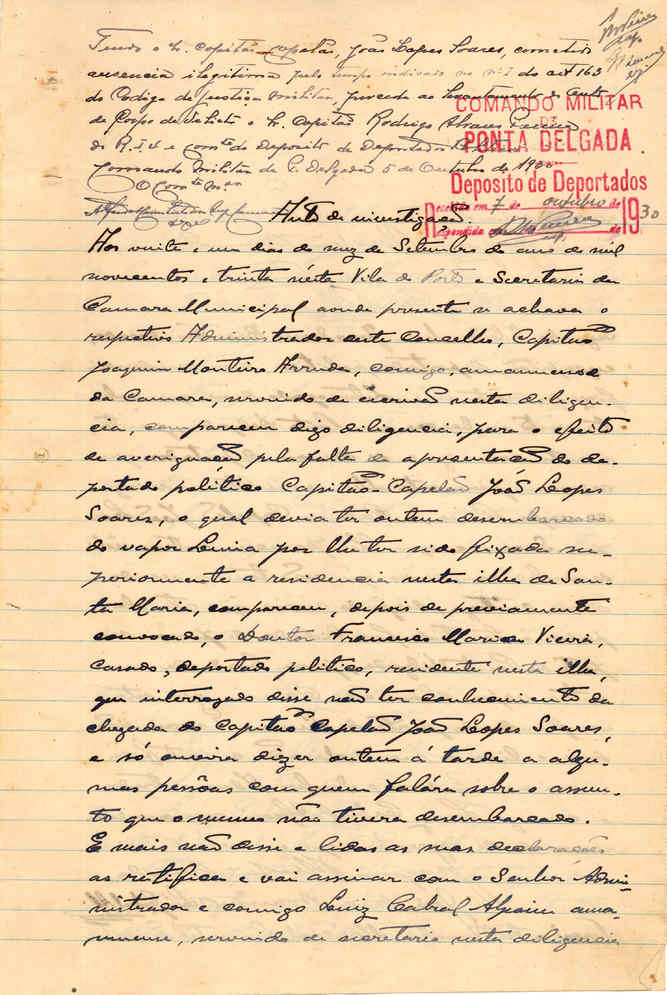 Tendo o Sr. Capitão-capelão, João Lopes Soares, cometido
ausencia ilegitima pelo tempo indicado no nº 1 do art 163
do Codigo de Justiça Militar, proceda ao levantamento do auto
de Corpo de delicto o Sr. Capitão Rodrigo Alvares Pereira
do R. I. 4 e comte do Deposito de Deportados
Comando Militar de P. Delgada 5 de Outubro de 1930
O Comte Mar
COMANDO MILITAR
DE
PONTA DELGADA
Deposito de Deportados
Recebida em 7 de outubro de 1930
Respondida em de
Auto de investigação
Aos vinte e um dias do mez de Setembro do ano de mil
novecentos e trinta nésta Vila do Porto e Secretaria da
Camara Municipal aonde presente se achava o
respetivo Administrador deste Concelho, Capitão
Joaquim Monteiro Arruda, comigo, amanuense
da Camara, servindo de escrivão nesta diligen-
cia, compareceu digo diligencia, para o efeito
de averiguação pela falta da apresentação do de-
portado politico Capitão-Capelão João Lopes
Soares, o qual devia ter ontem desembarcado
do vapor Lima por lhe ter sido fixada su-
periormente a residencia nesta ilha de San-
ta Maria, compareceu, depois de previamente
convocado, o Doutor Francisco Maria Vieira,
casado, deportado politico, residente nesta ilha,
que interrogado disse não ter conhecimento da
chegada do Capitão Capelão João Lopes Soares,
e só ouvira dizer ontem á tarde a algu-
mas pessôas com quem falára sobre o assun-
to que o mesmo não tivera desembarcado.
E mais não disse e lidas as suas declarações
as ratifica e vai assinar com o Senhor Admi-
nistrador e comigo Luiz Cabral Alpoim ama-
nuense, servindo de secretario nesta diligencia